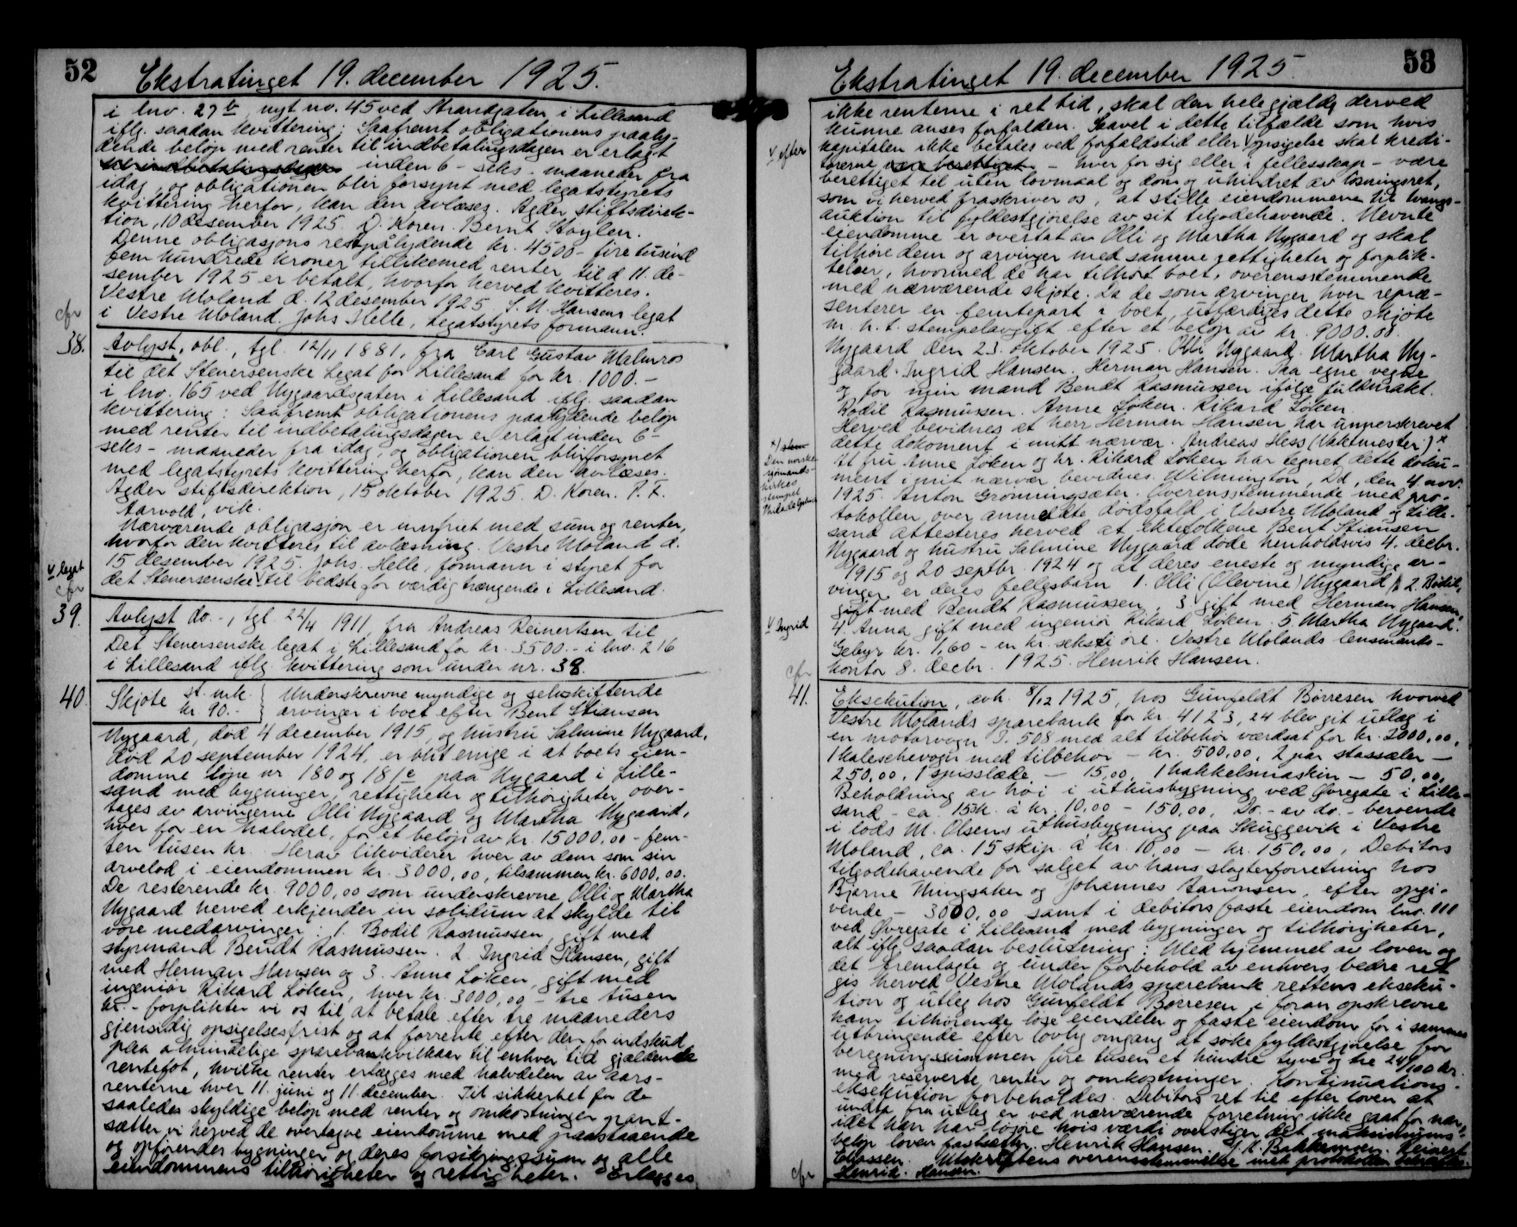 52
Ekstratinget 19. december 1925.
i lnv. 27b nyt no. 45 ved Strandgaten, i Lillesand
iflg. saadan kvittering: Saafremt obligationens paaly-
dende beløp med renter til indbetalingsdagen er erlagt
inden 6 - seks - maaneder fra
idag, og obligationen blir forsynt med legatstyrets
kvittering herfor, kan den avlæses. Agder stiftsdirek-
tion, 10 desember 1925. D. Koren. Bernt
Denne obligasjons restpålydende kr. 4500 - fire tusind
fem hundrede kroner tillikemed renter til d. 11. de-
sember 1925 er betalt, hvorfor herved kvitteres.
Vestre Moland d. 12 desember 1925. S. N. Hansens legat
i Vestre Moland. Johs Helle, legatstyrets formann.
cfr
38. Avlyst, obl., tgl. 12/11 1881, fra Carl Gustav Malmros
til det Stenersenske Legat for Lillesand for kr. 1000.-
i lnv. 165 ved Nygaardsgaten i Lillesand iflg. saadan
kvittering: Saafremt obligationens paalydende beløp
med renter til indbetalingsdagen er erlagt inden 6 -
seks - maaneder fra idag, og obligationen blir forsynet
med legatstyrets kvittering herfor, kan den avlæses.
Agder stiftsdirektion, 15 oktober 1925. D. Koren. P. F.
Aarvold, vik.
Nærværende obligasjon er innfriet med sum og renter,
hvorfor den kvitteres til avlæsning. Vestre Moland d.
15 desember 1925. Johs. Helle, formann i styret for
det Stenersenske √ til bedste for værdig trængende i Lillesand.
√ legat
cfr
39. Avlyst do.-, tgl 22/4 1911 fra Andreas Reinertsen til
Det Stenersenske legat i Lillesand for kr. 3500.- i lnv. 216
i Lillesand iflg. kvittering som under nr. 38.
40. Skjøte st. mk kr 90.- Underskrevne myndige og selvskiftende
arvinger i boet efter Bent Stiansen
Nygaard, død 4 december 1915, og hustru Salmine Nygaard,
død 20 september 1924, er blit enige i at boets eien-
domme Løpe nr 180 og 181c paa Nygaard i Lille-
sand med bygninger, rettigheter og tilhørigheter, over-
tages av arvingerne Olli Nygaard og Martha Nygaard,
hver for en halvdel, for et beløp av kr. 15000,00 - fem-
ten tusen kr. Herav likviderer hver av dem som sin
arvelod i eiendommen kr. 3000,00, tilsammen kr. 6000,00.
De resterende kr. 9000,00 som underskrevne Olli og Martha
Nygaard herved erkjender in solidum at skylde til
vore medarvinger: 1. Bodil Rasmussen, gift med
styrmand Bendt Rasmussen. 2. Ingrid Hansen, gift
med Herman Hansen og 3. Anne Løken, gift med
ingeniør Rikard Løken, hver kr. 3000,00 - tre tusen
kr. - forplikter vi os til at betale efter tre maaneders
gjensidig opsigelsesfrist og at forrente efter den for indskud
paa almindelige sparebankvilkaar til enhver tid gjældende
rentefot, hvilke renter erlægges med halvdelen av aars-
renterne hver 11. juni og 11 december. Til sikkerhet for de
saaledes skyldige beløp med renter og omkostninger pant-
sætter vi herved de overtagne eiendomme med paastaaende
og opførendes bygninger og deres forsikringssum og alle
eiendommens tilhørigheter og rettigheter. Erlægges
53
Ekstratinget 19. december 1925.
ikke renterne i ret tid, skal den hele gjæld derved
kunne anses forfalden. Saavel i dette tilfælde som hvis
kapitalen ikke betales ved forfaldstid eller √ opsigelse skal kredi-
√ efter
torerne - hver for sig eller i fellesskap - være
berettiget til uten lovmaal og dom og uhindret av løsningsret,
som vi herved fraskriver os, at stille eiendommene til tvangs-
auktion til fyldestgjørelse av sit tilgodehavende. Nevnte
eiendomme er overtat av Olli og Martha Nygaard og skal
tilhøre dem og arvinger med samme rettigheter og forplik-
telser, hvormed de har tilhørt boet, overensstemmende
med nærværende skjøte. Da de som arvinger hver repræ-
senterer en femtepart i boet, utfærdiges dette skjøte
m. h. t. stempelavgift efter et beløp av kr. 9000.00.
Nygaard den 23. oktober 1925. Olli Nygaard. Martha Ny-
gaard. Ingrid Hansen. Herman Hansen. Paa egne vegne
og for min mand Bendt Rasmussen ifølge fuldmakt.
Bodil Rasmussen. Anne Løken. Rikard Løken
Herved bevidnes at herr Herman Hansen har underskrevet
dette dokument i mitt nærvær. Andreas Hess (Vaktmester.) x
x/ Den norske
sjømands-
kirkes
stempel
Philadelphia
At fru Anne Løken og hr. Rikard Løken har tegnet dette doku-
ment i mit nærvær bevidnes. Wilmington, Dd, den 4. nov.
1925. Anton Grønningsæter. Overensstemmende med pro-
tokollen over anmeldte dødsfald i Vestre Moland og Lille-
sand attesteres herved at ektefolkene Bent Stiansen
Nygaard og hustru Salmine Nygaard døde henholdsvis 4. decbr.
1915 og 20 septbr. 1924 og at deres eneste og myndige ar-
vinger er deres fellesbarn 1. Olli (Olevine) Nygaard, 2. Bodil,
gift med Bendt Rasmussen, 3 √ gift med Herman Hansen,
√ Ingrid
4. Anna gift med ingeniør Rikard Løken. 5. Martha Nygaard.
Gebyr kr. 1,60 - en kr. seksti øre. Vestre Molands lensmands-
kontor 8. decbr. 1925. Henrik Hansen.
cfr
41. Eksekution, avh. 8/12 1925, hos Gunfeldt Børresen hvorved
Vestre Molands sparebank for kr. 4123,24 blev git utlæg i
en motorvogn I. 508 med alt tilbehør værdsat for kr. 2000,00,
1 kaleschevogn med tilbehør - kr. 500,00, 2 par stassæler -
250,00, 1 spisslæde, - 15,00, 1 hakkelsmaskin - 50,00,
Beholdning av høi i uthusbygning ved Øvregate i Lille-
sand - ca. 15sk. à kr. 10,00 - 150,00, Do.- av do.- beroende
i lods M. Olsens uthusbygning paa Skuggevik i Vestre
Moland, ca. 15 skip. à kr. 10,00 - kr. 150,00, Debitors
tilgodehavende for salget av hans slagterforretning hos
Bjarne Thingsaker og Johannes Aanonsen, efter opgi-
vende - 3000,00 samt i debitors faste eiendom lnv. 111
ved Øvregate i Lillesand med bygninger og tilhørigheter,
alt iflg. saadan beslutning: Med hjemmel av loven og
det fremlagte og under forbehold av enhvers bedre ret
gis herved Vestre Molands sparebank rettens ekseku-
tion og utlæg hos Gunfeldt Børresen i foran opskrevne
ham tilhørende løse eiendeler og faste eiendom for i sammes
utbringende efter lovlig omgang at søke fyldestgjørelse for
beregningssummen fire tusen et hundre tyve og tre 24/100 kr.
med reserverte renter og omkostninger. Kontinuations-
eksekution forbeholdes. Debitors ret til efter loven at
undta fra utlæg er ved nærværende forretning ikke gaat for nær,
idet han har løsøre hvis værdi overstiger det maksimums
beløp loven fastsætter. Henrik Hansen. Reinert
Eliassen. Utskriftens overensstemmelse med protokollen
Henrik Hansen.
cfr